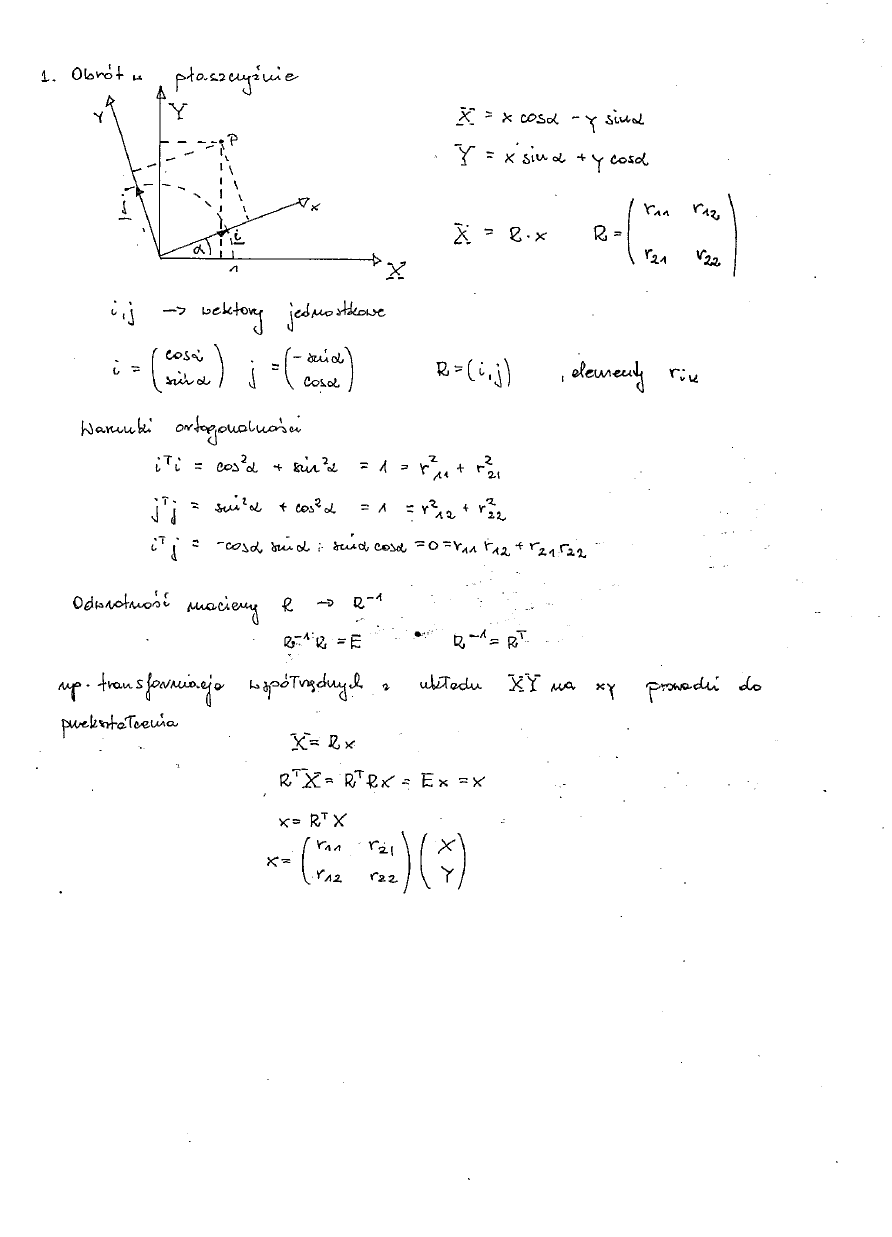 1. Obrót w płaszczyźnie
Y Y P
j i x
α 1 X
X = x cosα - y sinα
Y = x sinα + y cosα
X = R·x R = ( r11 r12
r21 r22 )
i,j → wektory jednostkowe
i = ( cosα
sinα ) j = ( - sinα
cosα ) R = (i,j) , elementy rik
Warunki ortogonalności
iᵀi = cos²α + sin²α = 1 = r²11 + r²21
jᵀj = sin²α + cos²α = 1 = r²12 + r²22
iᵀj = -cosα sinα + sinα cosα = 0 = r11 r12 + r21 r22
Odwrotność macierzy R → R⁻¹
R⁻¹·R = E R⁻¹ = Rᵀ
np. transformacja współrzędnych z układu XY na xy prowadzi do
przekształcenia
X = Rx
RᵀX = RᵀRx = Ex = x
x = RᵀX
x = ( r11 r21
r12 r22 ) ( X
Y )